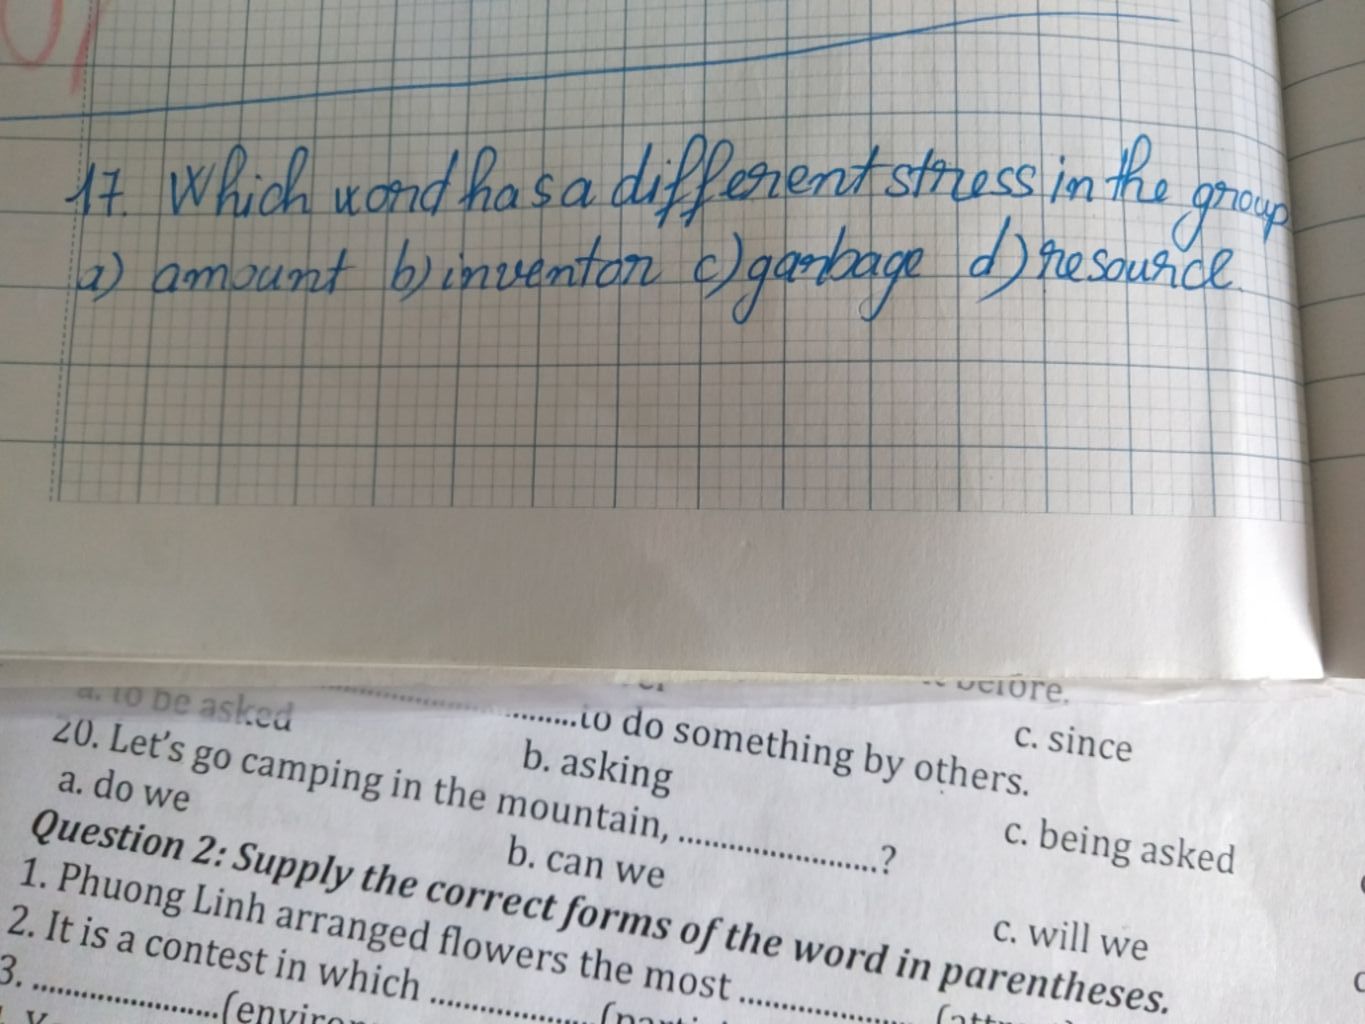 17. Which word has a different stress in the group
a) amount b) inventor c) garbage d) resource.
before.
c. since
..........to do something by others.
a. to be asked
b. asking
c. being asked
20. Let's go camping in the mountain, ......................?
a. do we
b. can we
c. will we
Question 2: Supply the correct forms of the word in parentheses.
1. Phuong Linh arranged flowers the most ......................
2. It is a contest in which ......................
3. ......................